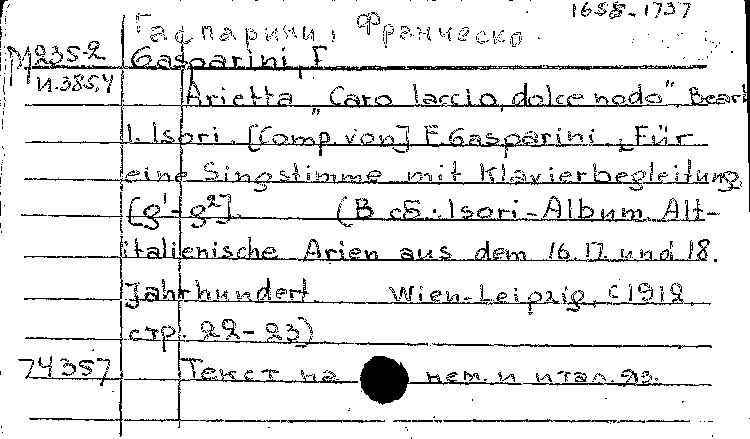 1658-1737
Гаспарини, Франческо.
М 235-2 Gasparini, F
И.385У Arietta "Caro laccio, dolce nodo". Bearb.
I. Isori. [Comp. von] F. Gasparini. Für
eine Singstimme mit Klavierbegleitung
[g¹-g²]. (В сб.: Isori-Album. Alt-
italienische Arien aus dem 16. 17. und 18.
Jahrhundert. Wien-Leipzig, c 1912
стр. 22-23)
74357 Текст на нем. и итал. яз.